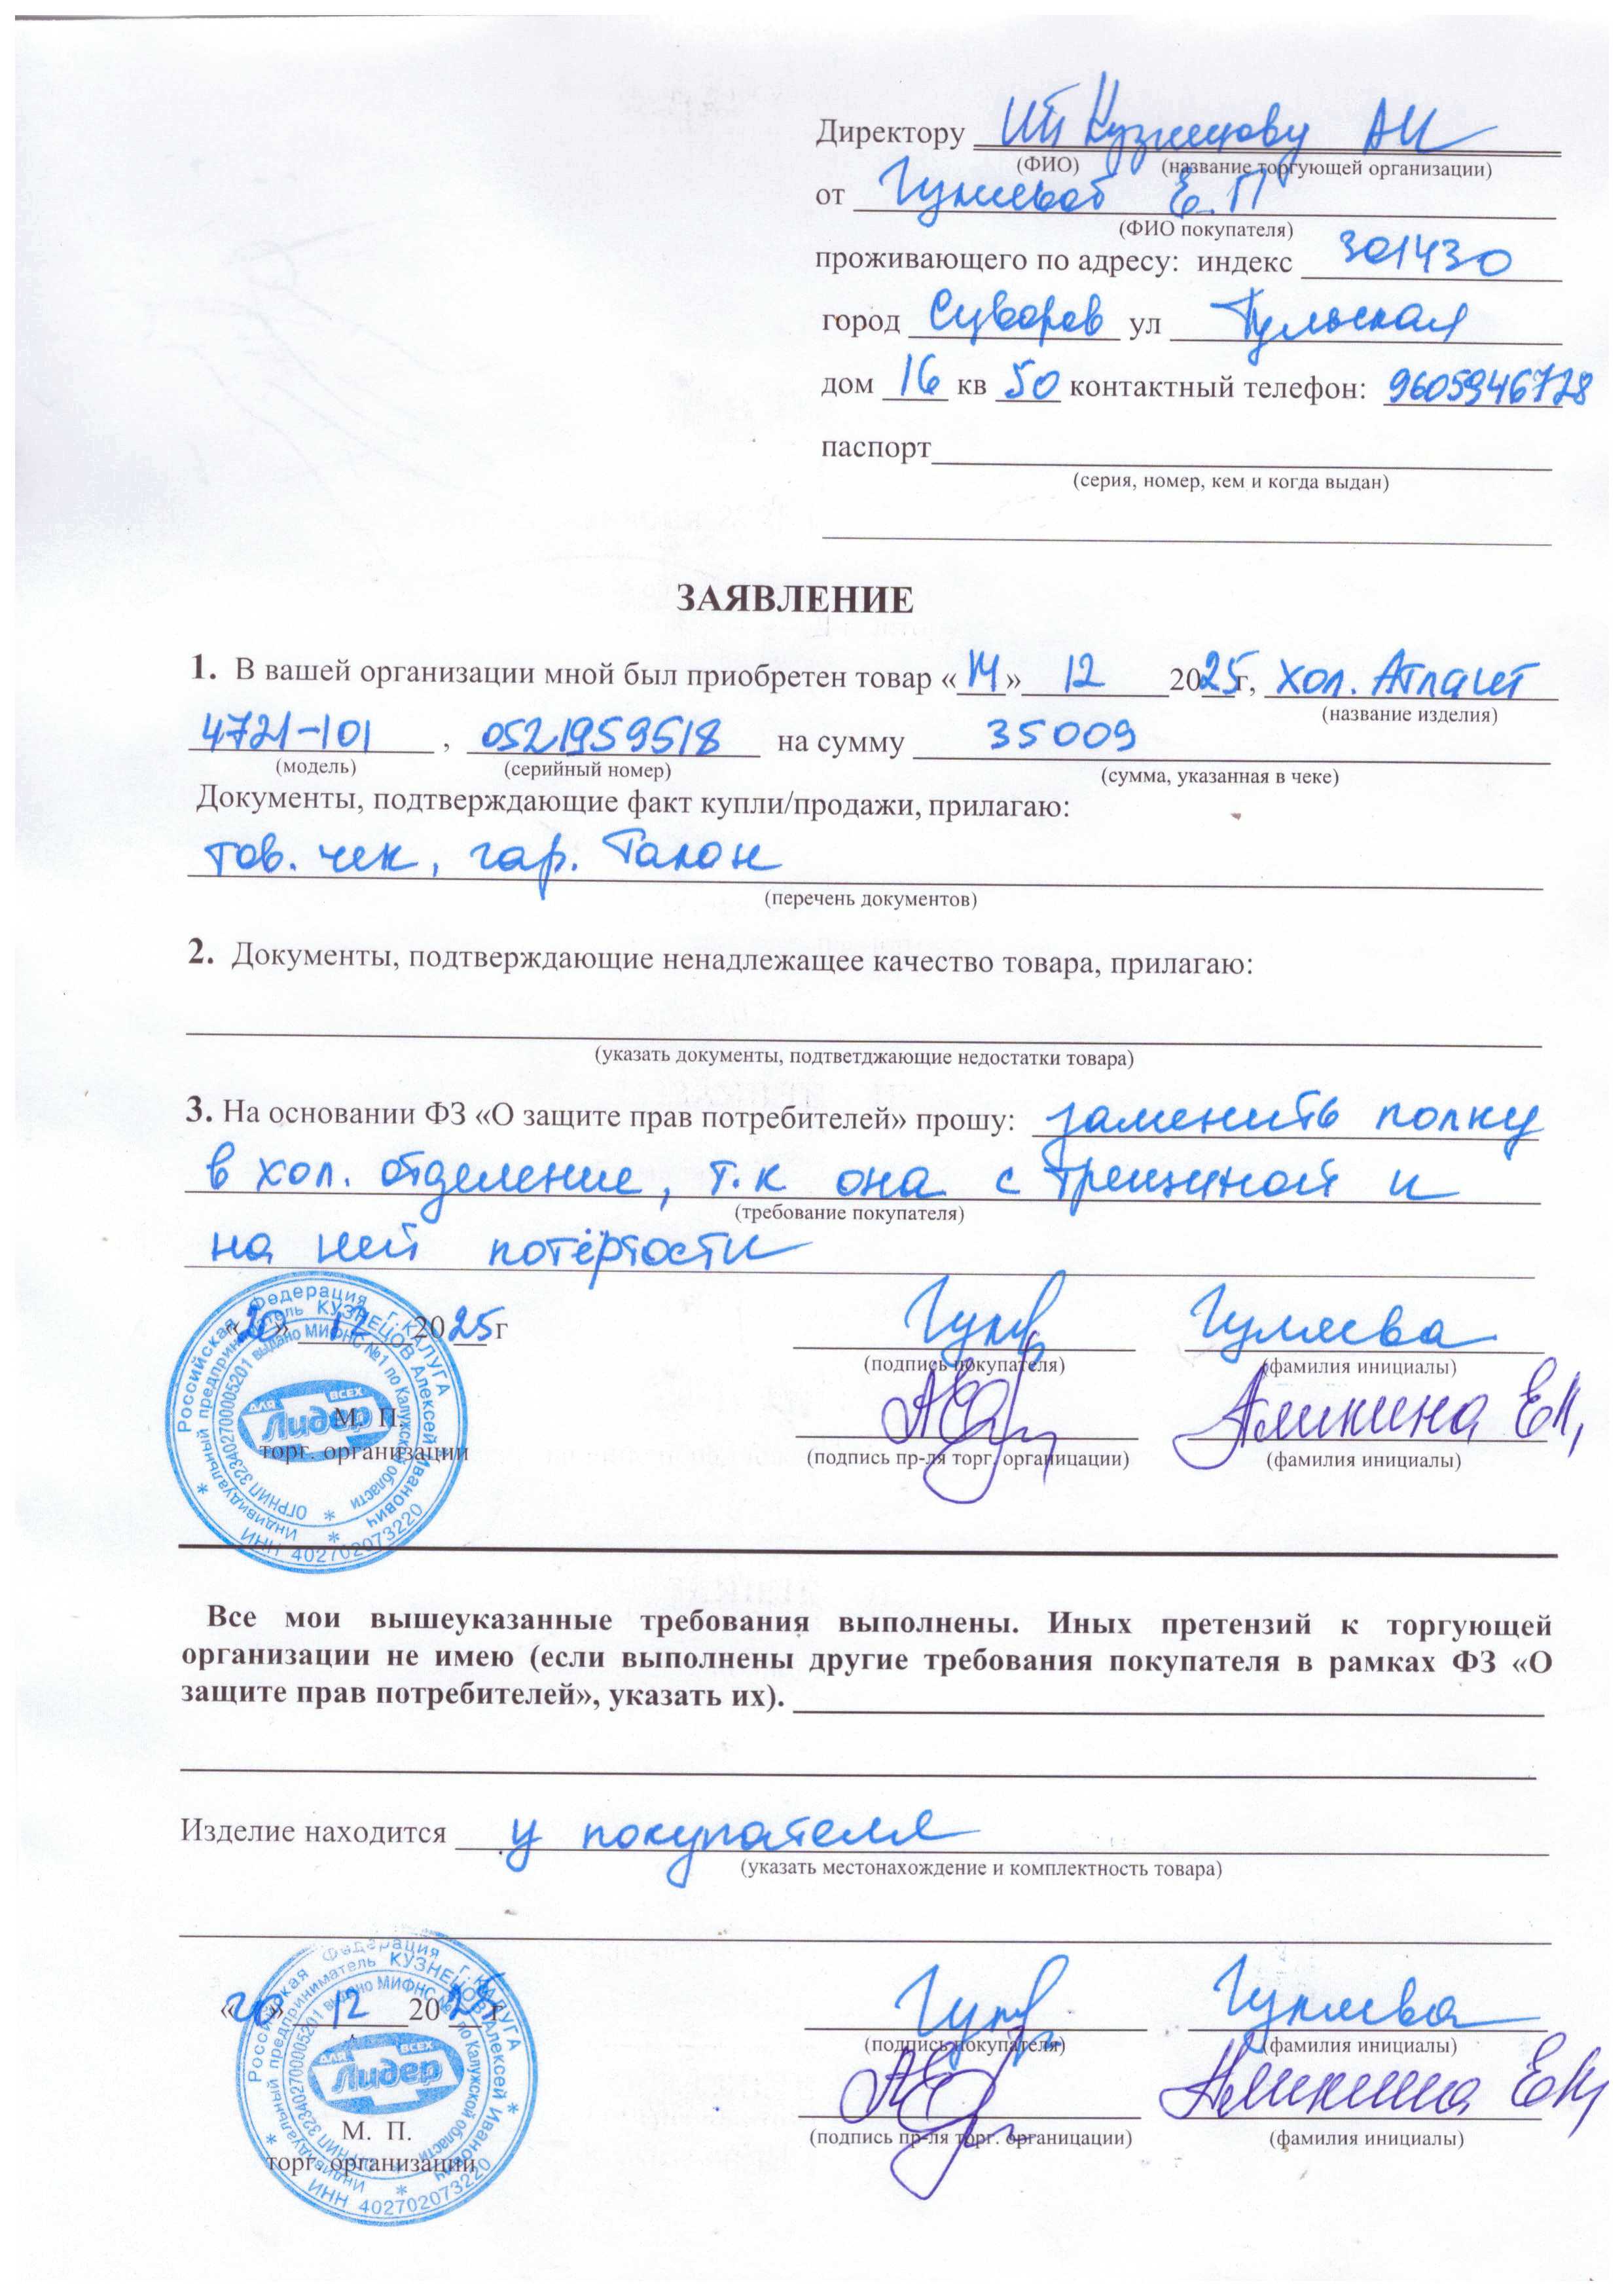 Директору ИП Кузнецову АИ
(ФИО) (название торгующей организации)
от Гуляевой Е.П
(ФИО покупателя)
проживающего по адресу: индекс 301430
город Суворов ул Тульская
дом 16 кв 50 контактный телефон: 9605946728
паспорт
(серия, номер, кем и когда выдан)
ЗАЯВЛЕНИЕ
1. В вашей организации мной был приобретен товар «14» 12 2025г, хол. Атлант
(название изделия)
4721-101, 0521959518 на сумму 35009
(модель) (серийный номер) (сумма, указанная в чеке)
Документы, подтверждающие факт купли/продажи, прилагаю:
тов. чек, гар. талон
(перечень документов)
2. Документы, подтверждающие ненадлежащее качество товара, прилагаю:
(указать документы, подтветджающие недостатки товара)
3. На основании ФЗ «О защите прав потребителей» прошу: заменить полку
в хол. отделение, т.к она с трещиной и
(требование покупателя)
на ней потёртости
«20» 12 2025г Гуляева
(подпись покупателя) (фамилия инициалы)
Аликина ЕМ,
М. П.
торг. организации (подпись пр-ля торг. органицации) (фамилия инициалы)
Российская Федерация г. КАЛУГА
Индивидуальный предприниматель КУЗНЕЦОВ Алексей Иванович
ОГРНИП 323402700005201 выдано МИФНС №1 по Калужской области
ИНН 402702073220
для Лидер всех
Все мои вышеуказанные требования выполнены. Иных претензий к торгующей
организации не имею (если выполнены другие требования покупателя в рамках ФЗ «О
защите прав потребителей», указать их).
Изделие находится у покупателя
(указать местонахождение и комплектность товара)
«20» 12 2025г Гуляева
(подпись покупателя) (фамилия инициалы)
Аликина ЕМ,
М. П.
торг. организации (подпись пр-ля торг. органицации) (фамилия инициалы)
Российская Федерация г. КАЛУГА
Индивидуальный предприниматель КУЗНЕЦОВ Алексей Иванович
ОГРНИП 323402700005201 выдано МИФНС №1 по Калужской области
ИНН 402702073220
для Лидер всех